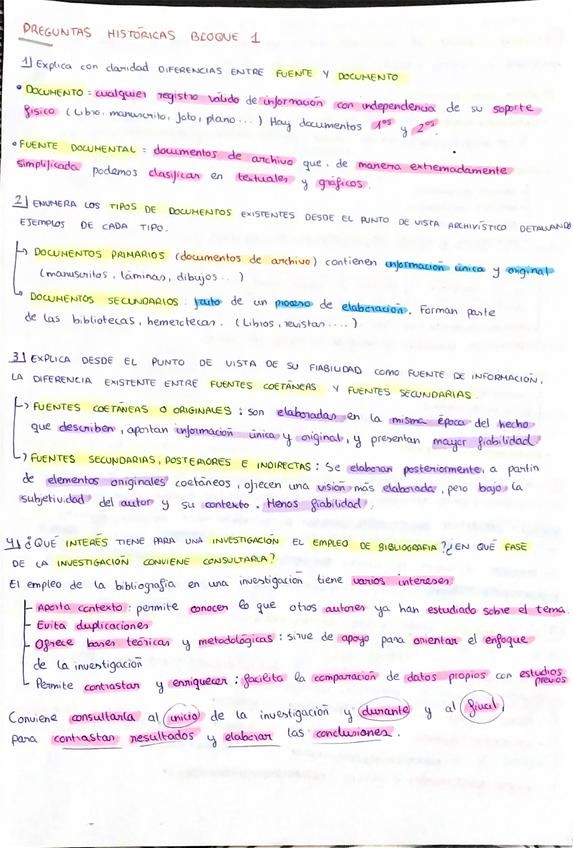 PREGUNTAS HISTÓRICAS BLOQUE 1
1) Explica con claridad DIFERENCIAS ENTRE FUENTE Y DOCUMENTO
• DOCUMENTO = cualquier registro válido de información con independencia de su soporte
físico (Libro, manuscrito, foto, plano ... ) Hay documentos 1ºs y 2ºs.
• FUENTE DOCUMENTAL = documentos de archivo que, de manera extremadamente
simplificada podemos clasificar en textuales y gráficos.
2) ENUMERA LOS TIPOS DE DOCUMENTOS EXISTENTES DESDE EL PUNTO DE VISTA ARCHIVÍSTICO DETALLANDO
EJEMPLOS DE CADA TIPO.
↳ DOCUMENTOS PRIMARIOS (documentos de archivo) contienen información única y original
(manuscritos, láminas, dibujos ... )
↳ DOCUMENTOS SECUNDARIOS: fruto de un proceso de elaboración. Forman parte
de las bibliotecas, hemerctecas. (Libros, revistas .... )
3) EXPLICA DESDE EL PUNTO DE VISTA DE SU FIABILIDAD COMO FUENTE DE INFORMACIÓN,
LA DIFERENCIA EXISTENTE ENTRE FUENTES COETÁNEAS Y FUENTES SECUNDARIAS.
↳ FUENTES COETÁNEAS O ORIGINALES: son elaboradas en la misma época del hecho
que describen, aportan información única y original, y presentan mayor fiabilidad
↳ FUENTES SECUNDARIAS, POSTERIORES E INDIRECTAS: Se elaboran posteriormente, a partir
de elementos originales coetáneos, ofrecen una visión más elaborada, pero bajo la
subjetividad del autor y su contexto. Menos fiabilidad.
4) ¿QUÉ INTERÉS TIENE PARA UNA INVESTIGACIÓN EL EMPLEO DE BIBLIOGRAFIA? ¿EN QUÉ FASE
DE LA INVESTIGACIÓN CONVIENE CONSULTARLA?
El empleo de la bibliografía en una investigación tiene varios intereses
Aporta contexto: permite conocer lo que otros autores ya han estudiado sobre el tema.
Evita duplicaciones
Ofrece bases teóricas y metodológicas: sirve de apoyo para orientar el enfoque
de la investigación
Permite contrastar y enriquecer: facilita la comparación de datos propios con estudios
previos
Conviene consultarla al inicio de la investigación y durante y al final,
para contrastar resultados y elaborar las conclusiones.